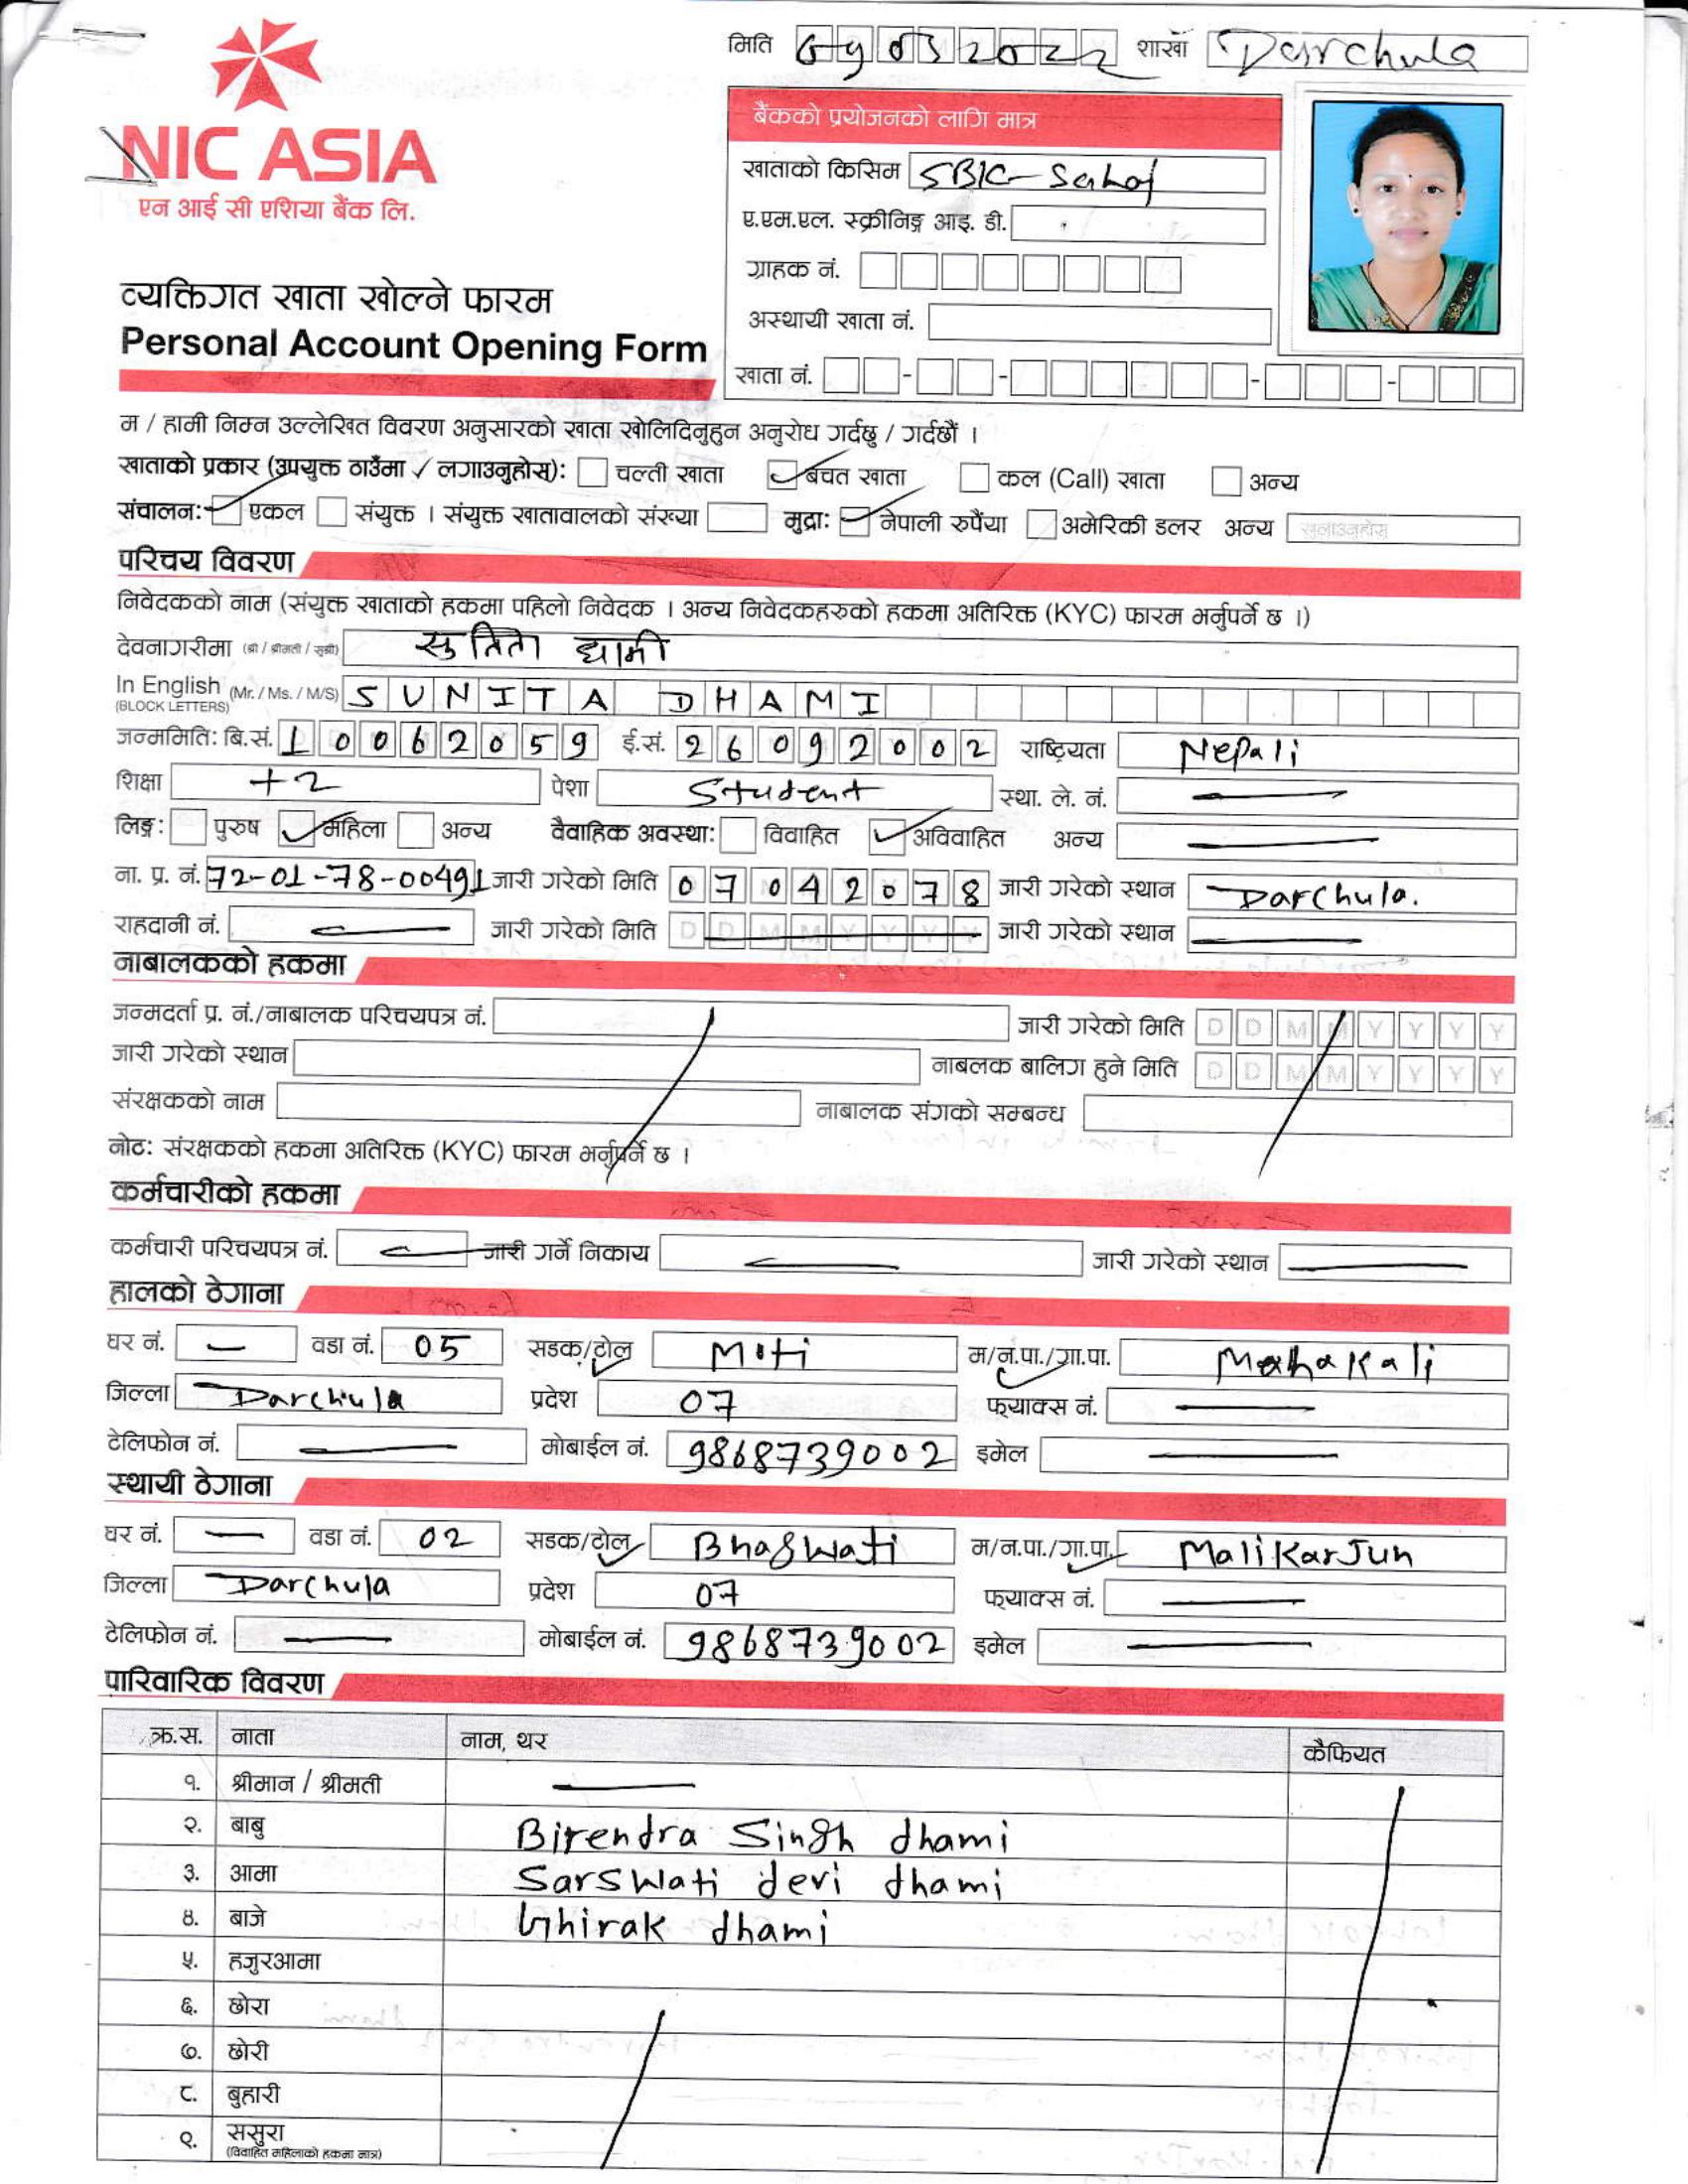 मिति 09032022 शाखा Darchula
NIC ASIA
एन आई सी एशिया बैंक लि.
बैंकको प्रयोजनको लागि मात्र
खाताको किसिम SBIC-Sahaj
ए.एम.एल. स्क्रीनिङ्ग आइ. डी.
ग्राहक नं.
अस्थायी खाता नं.
खाता नं. - - - -
व्यक्तिगत खाता खोल्ने फारम
Personal Account Opening Form
म / हामी निम्न उल्लेखित विवरण अनुसारको खाता खोलिदिनुहुन अनुरोध गर्दछु / गर्दछौं ।
खाताको प्रकार (उपयुक्त ठाउँमा ✓ लगाउनुहोस्): चल्ती खाता ✓ बचत खाता कल (Call) खाता अन्य
संचालन: ✓ एकल संयुक्त । संयुक्त खातावालको संख्या मुद्रा: ✓ नेपाली रुपैंया अमेरिकी डलर अन्य खुलाउनुहोस्
परिचय विवरण
निवेदकको नाम (संयुक्त खाताको हकमा पहिलो निवेदक । अन्य निवेदकहरुको हकमा अतिरिक्त (KYC) फारम भर्नुपर्ने छ ।)
देवनागरीमा (श्री / श्रीमती / सुश्री) सुनिता धामी
In English (Mr. / Ms. / M/S) SUNITA DHAMI
(BLOCK LETTERS)
जन्ममिति: बि.सं. 10062059 ई.सं. 26092002 राष्ट्रियता Nepali
शिक्षा +2 पेशा Student स्था. ले. नं. —
लिङ्ग: पुरुष ✓ महिला अन्य वैवाहिक अवस्था: विवाहित ✓ अविवाहित अन्य —
ना. प्र. नं. 72-01-78-00491 जारी गरेको मिति 07042078 जारी गरेको स्थान Darchula.
राहदानी नं. — जारी गरेको मिति DDMMYYYY जारी गरेको स्थान —
नाबालकको हकमा
जन्मदर्ता प्र. नं./नाबालक परिचयपत्र नं. जारी गरेको मिति DDMMYYYY
जारी गरेको स्थान नाबलक बालिग हुने मिति DDMMYYYY
संरक्षकको नाम नाबालक संगको सम्बन्ध
नोट: संरक्षकको हकमा अतिरिक्त (KYC) फारम भर्नुपर्ने छ ।
कर्मचारीको हकमा
कर्मचारी परिचयपत्र नं. — जारी गर्ने निकाय — जारी गरेको स्थान —
हालको ठेगाना
घर नं. — वडा नं. 05 सडक/टोल Miti म/न.पा./गा.पा. Mahakali
जिल्ला Darchula प्रदेश 07 फ्याक्स नं. —
टेलिफोन नं. — मोबाईल नं. 9868739002 इमेल —
स्थायी ठेगाना
घर नं. — वडा नं. 02 सडक/टोल Bhagwati म/न.पा./गा.पा. MaliKarJun
जिल्ला Darchula प्रदेश 07 फ्याक्स नं. —
टेलिफोन नं. — मोबाईल नं. 9868739002 इमेल —
पारिवारिक विवरण
क्र.स. नाता नाम, थर कैफियत
१. श्रीमान / श्रीमती —
२. बाबु Birendra Singh dhami
३. आमा Sarswati devi dhami
४. बाजे Ghirak dhami
५. हजुरआमा
६. छोरा
७. छोरी
८. बुहारी
९. ससुरा
(विवाहित महिलाको हकमा मात्र)